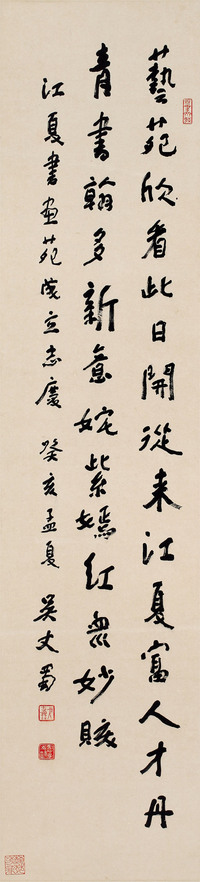 藝苑欣看此日開從来江夏富人才丹
青書翰多新意姹紫嫣紅無妙賅
江夏書画苑成立志慶 癸亥孟夏 吴丈蜀